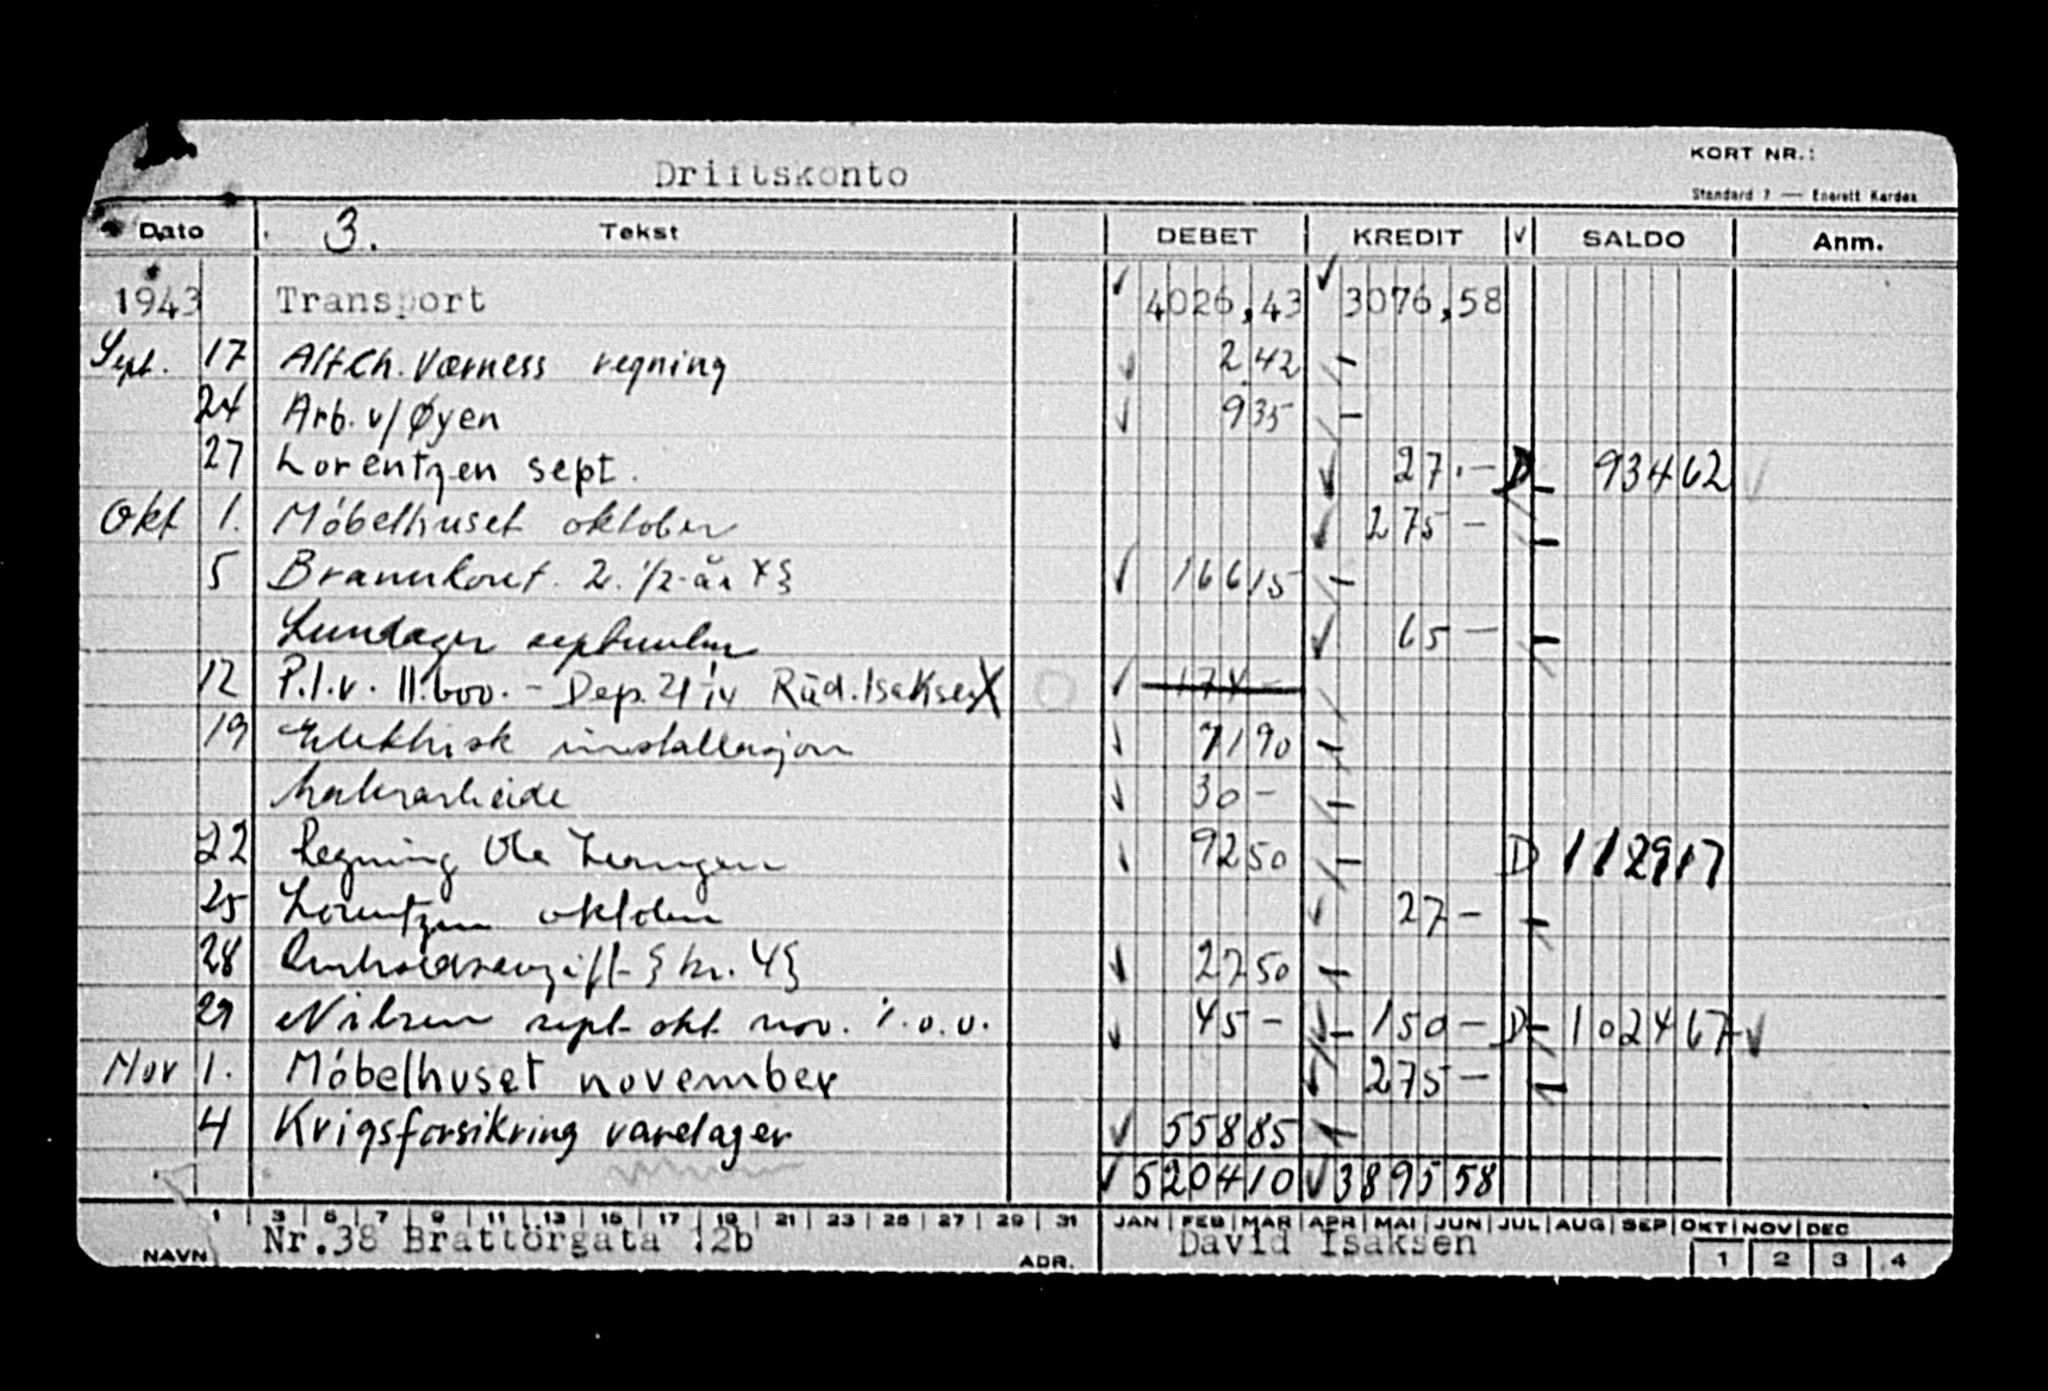 Driftskonto
KORT NR.:
Standard 7 — Enerett Kardex
Dato 3. Tekst DEBET KREDIT √ SALDO Anm.
1943 Transport 4026,43 3076,58
Sept. 17 Alf Ch. Værness regning 2 42
24 Arb. v/ Øyen 9 35
27 Lorentzen sept. 27.- D 934 62
Okt 1. Möbelhuset oktober 275 -
5 Brannkont. 2. 1/2-år 166 15
Lundager september 65 -
12 P.l.v. 11.600.- Dep. Rüd. Isaksen 174 -
19 Elektrisk installasjon 71 90
Malerarbeide 30 -
22 Regning Ole 92 50 D 1129 17
25 Lorentzen oktober 27 -
28 kr. 4 27 50
29 Nilsen sept okt nov. 45 - 150 - D 1024 67
Nov 1. Möbelhuset november 275 -
4 Krigsforsikring varelager 558 85
5204 10 3895 58
1 3 5 7 9 11 13 15 17 19 21 23 25 27 29 31 JAN FEB MAR APR MAI JUN JUL AUG SEP OKT NOV DEC
NAVN Nr.38 Brattörgata 12b ADR. David Isaksen 1 2 3 4